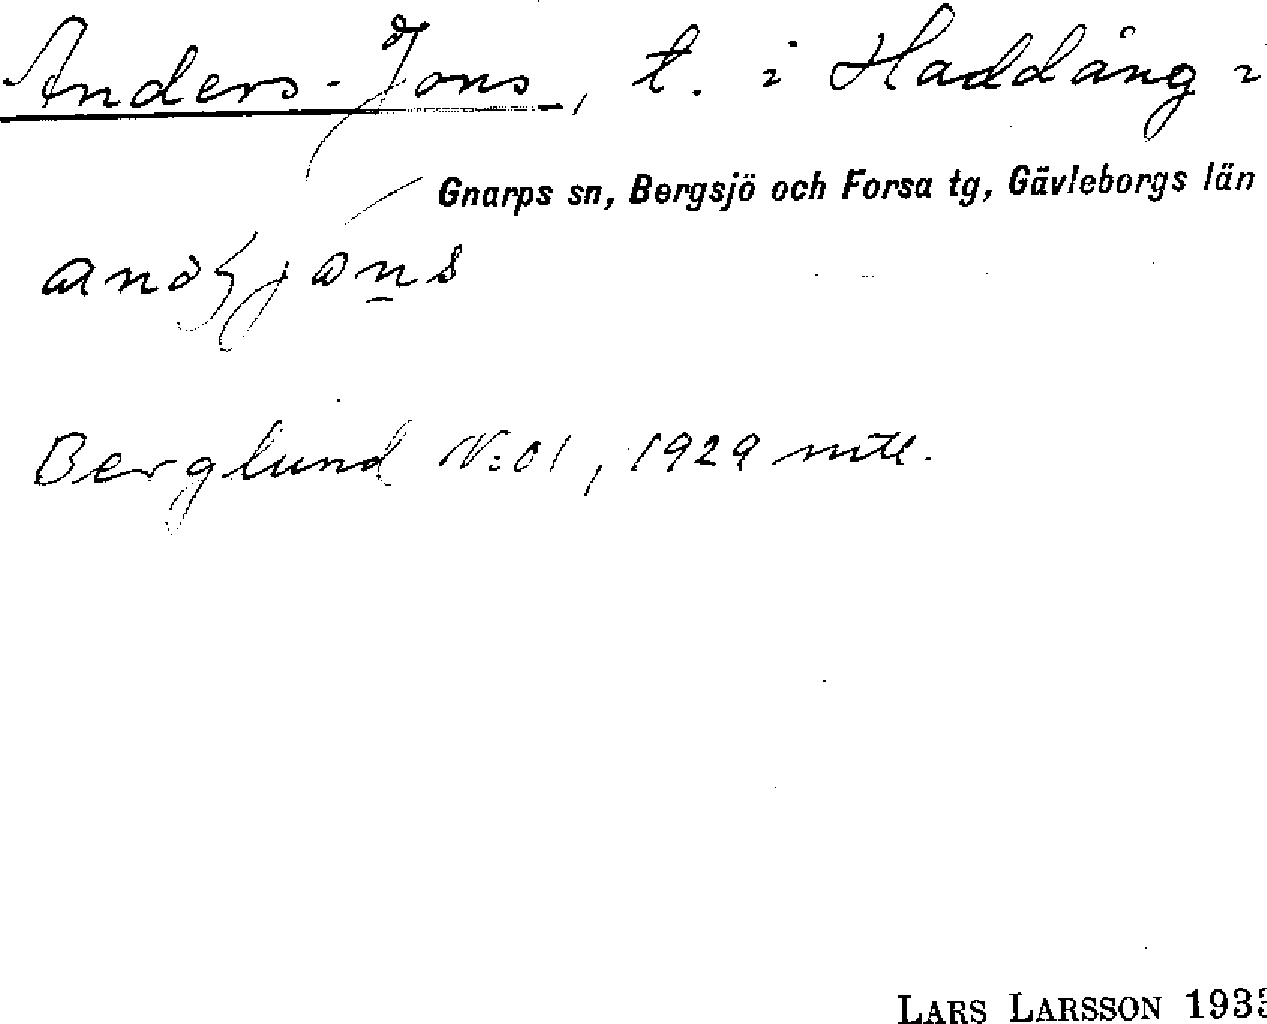 Anders-Jons, t. i Haddång i
Gnarps sn, Bergsjö och Forsa tg, Gävleborgs län
Berglund N:o 1, 1929 mtl.
LARS LARSSON 193